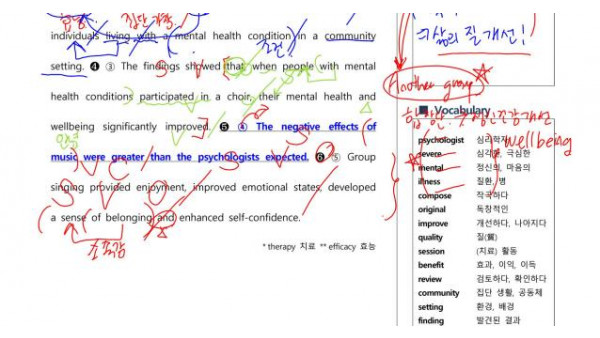 합창
집단 가창
individuals living with a mental health condition in a community
조건
setting. ❹ ③ The findings showed that when people with mental
health conditions participated in a choir, their mental health and
wellbeing significantly improved. ❺ ④ The negative effects of
music were greater than the psychologists expected. ❻ ⑤ Group
singing provided enjoyment, improved emotional states, developed
a sense of belonging and enhanced self-confidence.
소속감
* therapy 치료 ** efficacy 효능
의 삶의 질 개선!
Another group
Vocabulary
well being
psychologist 심리학자
severe 심각한, 극심한
mental 정신의, 마음의
illness 질환, 병
compose 작곡하다
original 독창적인
improve 개선하다, 나아지다
quality 질(質)
session (치료) 활동
benefit 효과, 이익, 이득
review 검토하다, 확인하다
community 집단 생활, 공동체
setting 환경, 배경
finding 발견된 결과